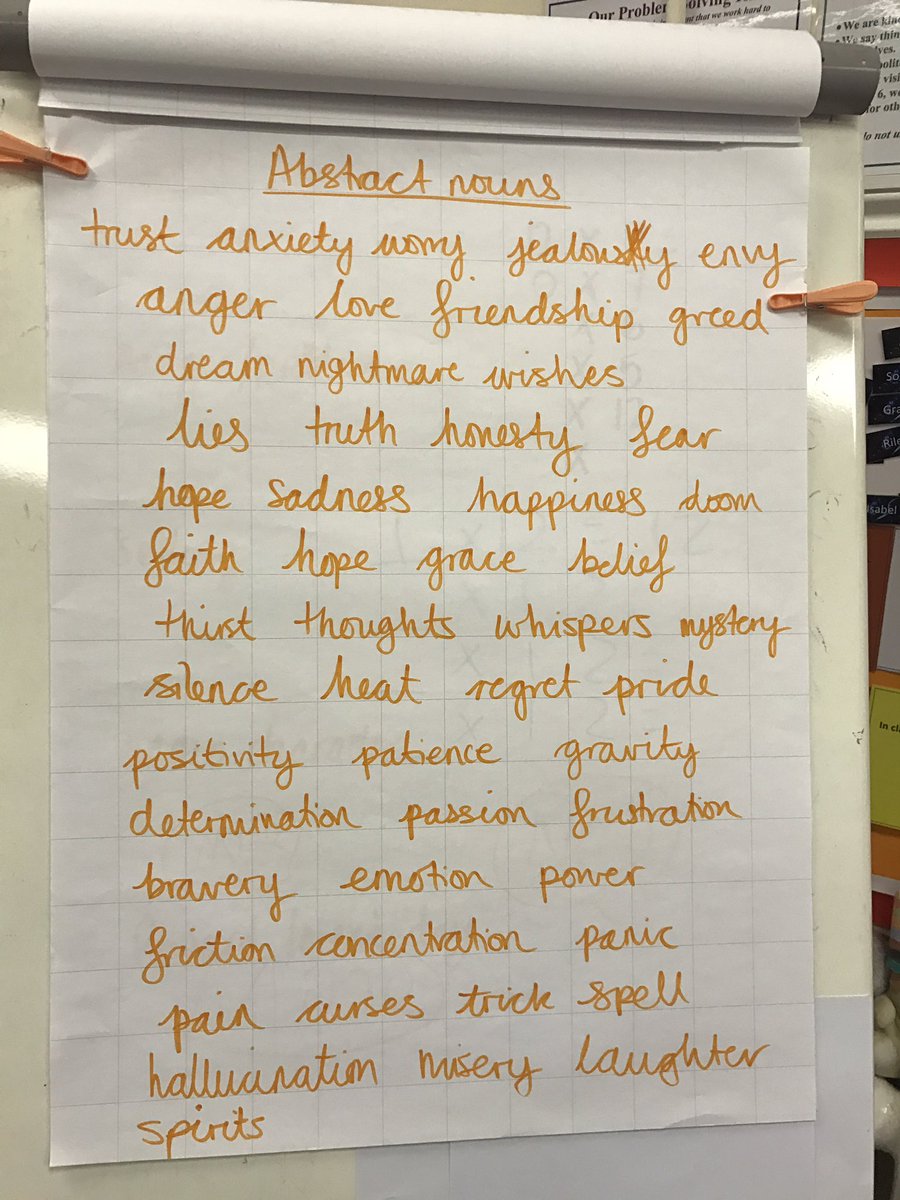 Our Problem Solving
that we work hard to
Abstract nouns
trust anxiety worry jealousy envy
anger love friendship greed
dream nightmare wishes
lies truth honesty fear
hope sadness happiness doom
faith hope grace belief
thirst thoughts whispers mystery
silence heat regret pride
positivity patience gravity
determination passion frustration
bravery emotion power
friction concentration panic
pain curses trick spell
hallucination misery laughter
spirits